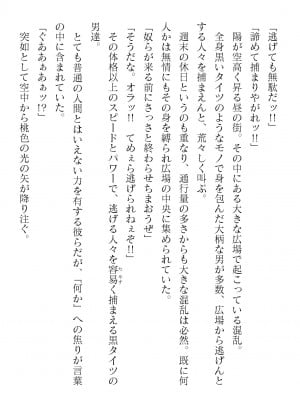 「逃げても無駄だッ!!」
「諦めて捕まりやがれッ!!」
　陽が空高く昇る昼の街。その中にある大きな広場で起こっている混乱。
　全身黒いタイツのようなモノで身を包んだ大柄な男が多数、広場から逃げんと
する人々を捕まえんと、荒々しく叫ぶ。
　週末の休日というのも重なり、通行量の多さからも大きな混乱は必然。既に何
人かは無情にもその身を縛られ広場の中央に集められていた。
「奴らが来る前にさっさと終わらせちまおうぜ」
「そうだな。オラッ!!　てめぇら逃げられねぇぞ!!」
　その体格以上のスピードとパワーで、逃げる人々を容易く捕まえる黒タイツの
男達。
　とても普通の人間とはいえない力を有する彼らだが、「何か」への焦りが言葉
の中に含まれていた。
「ぐああぁあぁッ!?」
　突如として空中から桃色の光の矢が降り注ぐ。